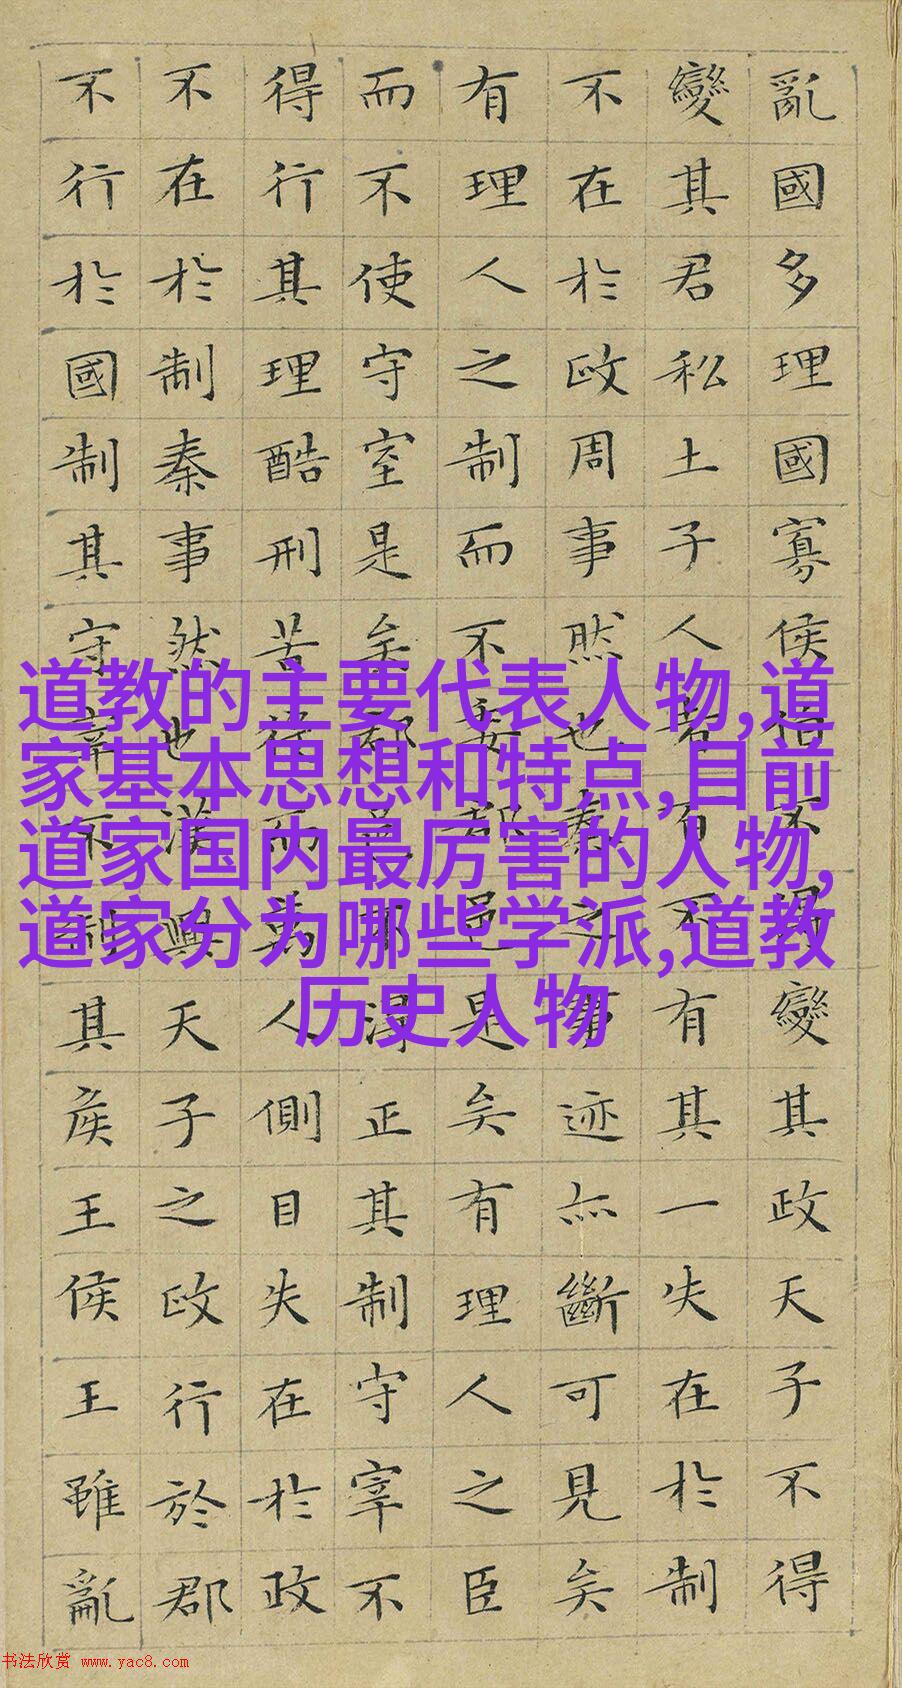 亂國多理國寡侯伯不得變其政天子不得
變其君私土子人者有不有其一失在於制
不在於政周事然也秦之事迹亦斷可見矣
有理人之制而不委郡邑是矣有理人之臣
而不使守室是矣郡邑不得正其制守宰不
得行其理酷刑苦役而萬人側目失在於政
不在於制秦事然也漢興天子之政行於郡
不行於國制其守宰不制其侯王侯王雖亂
道教的主要代表人物,道
家基本思想和特点,目前
道家国内最厉害的人物,
道家分为哪些学派,道教
历史人物
书法欣赏 www.yac8.com